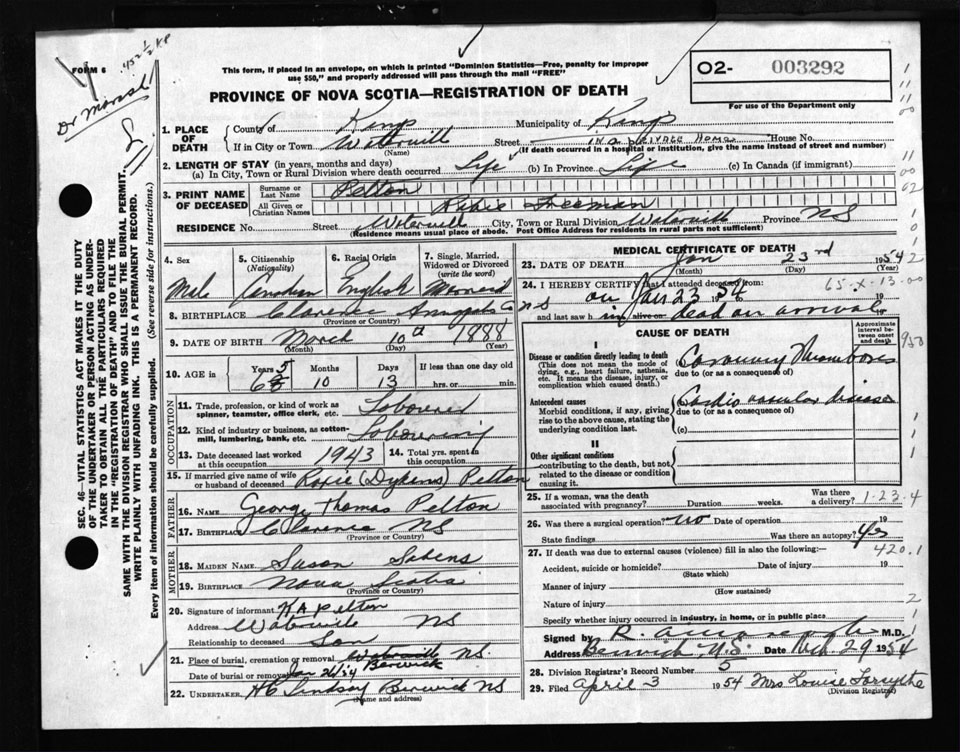 FORM 6
452 1/2 KP
Dr Morash
This form, if placed in an envelope, on which is printed "Dominion Statistics—Free, penalty for improper
use $50," and properly addressed will pass through the mail "FREE"
PROVINCE OF NOVA SCOTIA—REGISTRATION OF DEATH
O2- 003292
For use of the Department only
1. PLACE OF DEATH
County of Kings Municipality of Kings
If in City or Town Waterville Street in a private home House No.
(Name) (If death occurred in a hospital or institution, give the name instead of street and number)
2. LENGTH OF STAY (in years, months and days)
(a) In City, Town or Rural Division where death occurred Life (b) In Province Life (c) In Canada (if immigrant)
3. PRINT NAME OF DECEASED
Surname or Last Name Pelton
All Given or Christian Names Freeman
RESIDENCE No. Street Waterville City, Town or Rural Division Waterville Province NS
(Residence means usual place of abode. Post Office Address for residents in rural parts not sufficient)
4. Sex Male
5. Citizenship (Nationality) Canadian
6. Racial Origin English
7. Single, Married, Widowed or Divorced (write the word) Married
8. BIRTHPLACE Clarence Annapolis Co NS
(Province or Country)
9. DATE OF BIRTH March 10 1888
(Month) (Day) (Year)
10. AGE in Years 65 Months 10 Days 13 If less than one day old hrs. or min.
OCCUPATION
11. Trade, profession, or kind of work as spinner, teamster, office clerk, etc. Labourer
12. Kind of industry or business, as cotton-mill, lumbering, bank, etc. Labouring
13. Date deceased last worked at this occupation 1943 14. Total yrs. spent in this occupation
15. If married give name of wife or husband of deceased Roxie (Dykens) Pelton
FATHER
16. NAME George Thomas Pelton
17. BIRTHPLACE Clarence NS
(Province or Country)
MOTHER
18. MAIDEN NAME Susan Sabens
19. BIRTHPLACE Nova Scotia
(Province or Country)
20. Signature of informant K A Pelton
Address Waterville NS
Relationship to deceased Son
21. Place of burial, cremation or removal Waterville NS.
Berwick
Date of burial or removal Jan 26/54
22. UNDERTAKER H C Lindsay Berwick NS
(Name and address)
MEDICAL CERTIFICATE OF DEATH
23. DATE OF DEATH Jan 23rd 1954
(Month) (Day) (Year)
24. I HEREBY CERTIFY that I attended deceased from:
on Jan 23 1954 19
65-X-13-00
and last saw h im alive on dead on arrival 19
CAUSE OF DEATH
Approximate interval between onset and death
I
Disease or condition directly leading to death
(This does not mean the mode of dying, e.g., heart failure, asthenia, etc. It means the disease, injury, or complication which caused death.)
Coronary Thrombosis
due to (or as a consequence of)
Antecedent causes
Morbid conditions, if any, giving rise to the above cause, stating the underlying condition last.
Cardio vascular disease
due to (or as a consequence of)
(c)
II
Other significant conditions
contributing to the death, but not related to the disease or condition causing it.
25. If a woman, was the death associated with pregnancy? Duration weeks. Was there a delivery? 1-23-4
26. Was there a surgical operation? no Date of operation 19
State findings Was there an autopsy? yes
420.1
27. If death was due to external causes (violence) fill in also the following:—
Accident, suicide or homicide? Date of injury 19
(State which)
Manner of injury
(How sustained)
Nature of injury
Specify whether injury occurred in industry, in home, or in public place
Signed by M.D.
Address Berwick N.S. Date 29 1954
28. Division Registrar's Record Number 5
29. Filed April 3 1954 Mrs Louise Forsythe
(Division Registrar)
SEC. 46—VITAL STATISTICS ACT MAKES IT THE DUTY
OF THE UNDERTAKER OR PERSON ACTING AS UNDER-
TAKER TO OBTAIN ALL THE PARTICULARS REQUIRED
IN THE "REGISTRATION OF DEATH" AND TO FILE THE
SAME WITH THE DIVISION REGISTRAR WHO SHALL ISSUE THE BURIAL PERMIT.
WRITE PLAINLY WITH UNFADING INK. THIS IS A PERMANENT RECORD.
Every item of information should be carefully supplied. (See reverse side for instructions.)